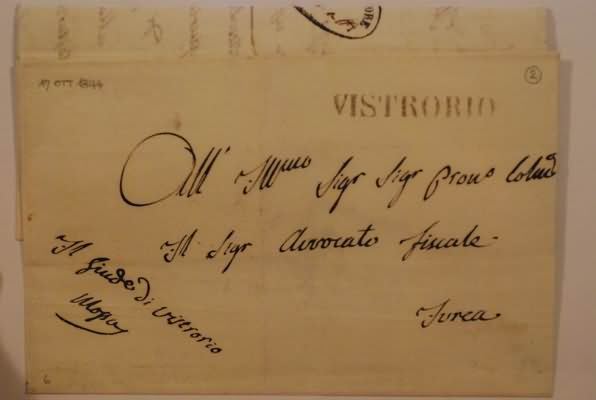 17 OTT 1844
2
VISTRORIO
All' Illmo Sigr Sigr Pron.o Colmo
Il Sigr Avvocato Fiscale
Ivrea
Il Giude di Vistrorio
6